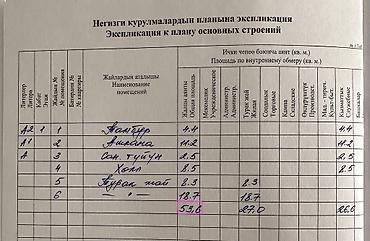 Негизги курулмалардын планына экспликация
Экспликация к плану основных строений
Ички ченөө боюнча аянт (кв. м.)
Площадь по внутреннему обмеру (кв. м.)
Литерлер
Литера
Кабат
Этаж
Жайдын №
№ помещения
Батирдин №
№ квартиры
Жайлардын аталышы
Наименование
помещений
Жалпы аянты
Общая площадь
Мекемелик
Учрежденческие
Администр.
Администр.
Турак жай
Жилая
Соодалык
Торговые
Кампа
Складские
Өндүрүштүк
Производст.
Кызматтык
Служебные
Башкалар
А2 1 1 Тамбур 4.4 4.4
А1 2 Ашкана 11.2 11.2
А 3 Сан. түйүн 2.5 2.5
4 Холл 8.5 8.5
5 Турак жай 8.3 8.3
6 — " — 18.7 18.7
53,6 27.0 26.6